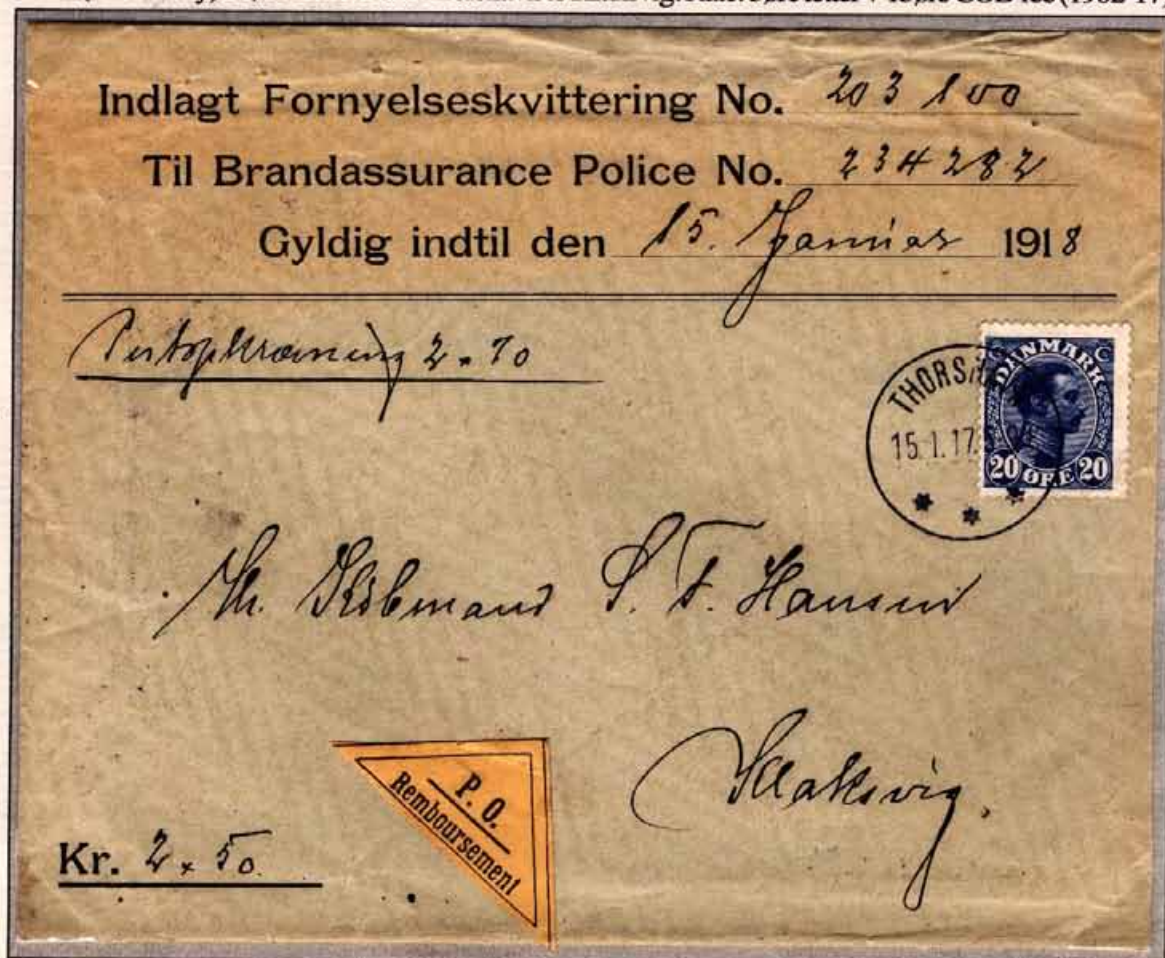 Indlagt Fornyelseskvittering No. 203100
Til Brandassurance Police No. 234282
Gyldig indtil den 15. Januar 1918
Postopkrævning 2.70
DANMARK
20 ØRE 20
THORSH
15.1.17.
Hr. Købmand S. F. Hansen
Klaksvig.
P. O.
Remboursement
Kr. 2.50